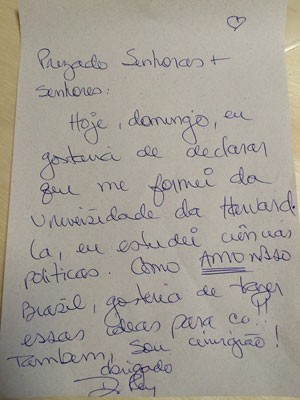 Prezado Senhoras +
Senhores:
Hoje, domingo, eu
gostaria de declarar
que me formei da
Universidade da Harvard.
Lá, eu estudei ciências
políticas. Como AMO NOSSO
Brasil, gostaria de trazer
essas ideas para cá..!!
Tambem, sou cirurgião!
obrigado
Dr. Rey